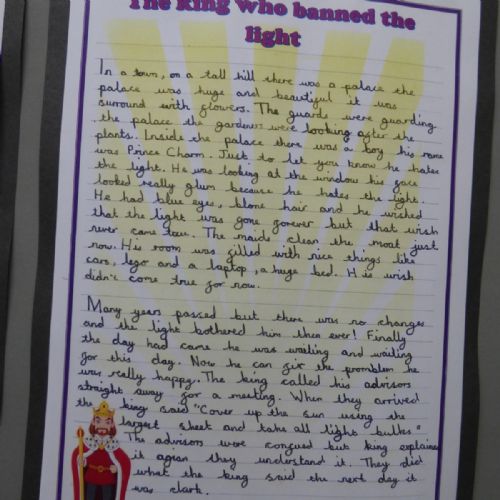 The king who banned the
light
In a town, on a tall hill there was a palace the
palace was huge and beautiful it was
surround with flowers. The guards were guarding
the palace the gardeners were looking after the
plants. Inside the palace there was a boy his name
was Prince Charm. Just to let you know he hates
the light. He was looking at the window his face
looked really glum because he hates the light.
He had blue eyes, blone hair and he wished
that the light was gone forever but that wish
never came true. The maids clean the moat just
now. His room was filled with nice things like
cars, lego and a laptop, a huge bed. His wish
didn't come true for now.
Many years passed but there was no changes
and the light bothered him then ever! Finally
the day had came he was waiting and waiting
for this day. Now he can fix the promblem he
was really happy. The king called his advisors
straight away for a meeting. When they arrived
the king said "Cover up the sun using the
largest sheet and take all light bulbs"
The advisors were confused but king explained
it again they understand it. They did
what the king said the next day it
was dark.